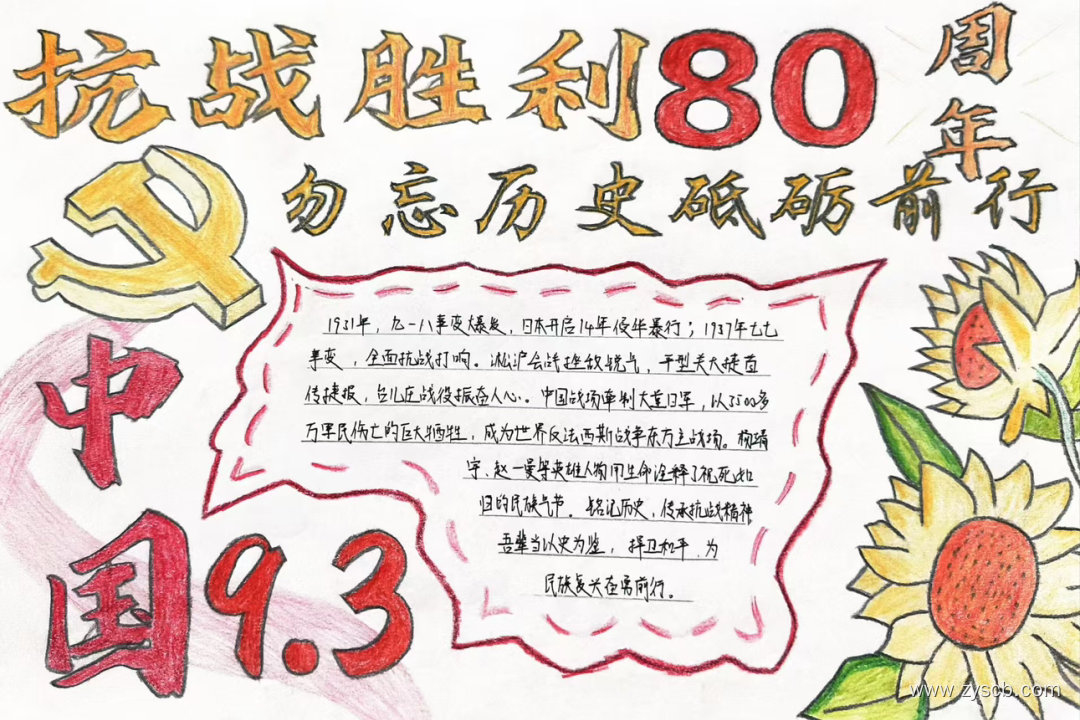 抗战胜利80周年
勿忘历史砥砺前行
中国9.3
1931年，九一八事变爆发，日本开启14年侵华暴行；1937年七七
事变，全面抗战打响。淞沪会战挫敌锐气，平型关大捷首
传捷报，台儿庄战役振奋人心。中国战场牵制大量日军，以3500多
万军民伤亡的巨大牺牲，成为世界反法西斯战争东方主战场。杨靖
宇、赵一曼等英雄人物用生命诠释了视死如
归的民族气节。铭记历史，传承抗战精神
吾辈当以史为鉴，捍卫和平，为
民族复兴在勇前行。
www.zyscb.com